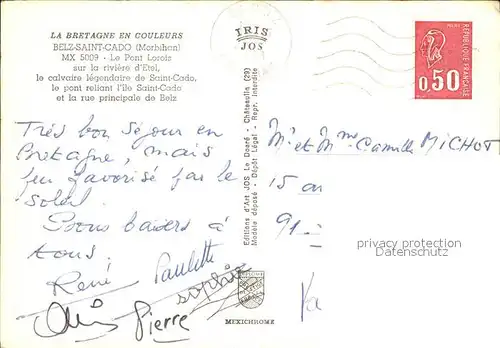 LA BRETAGNE EN COULEURS
BELZ-SAINT-CADO (Morbihan)
MX 5009 - Le Pont Lorois
sur la rivière d'Etel,
le calvaire légendaire de Saint-Cado,
le pont reliant l'île Saint-Cado
et la rue principale de Belz
IRIS
JOS
Editions d'Art JOS Le Doaré - Châteaulin (29)
Modèle déposé - Dépôt Légal - Repr. interdite
REPUBLIQUE FRANÇAISE
0,50
Très bon séjour en
Bretagne, mais
peu favorisé par le
soleil.
Bons baisers à
tous.
René Paulette
Sophie
Pierre
Mr et Mme Camille MICHOT
15
91
privacy protection
Datenschutz
MEXICHROME